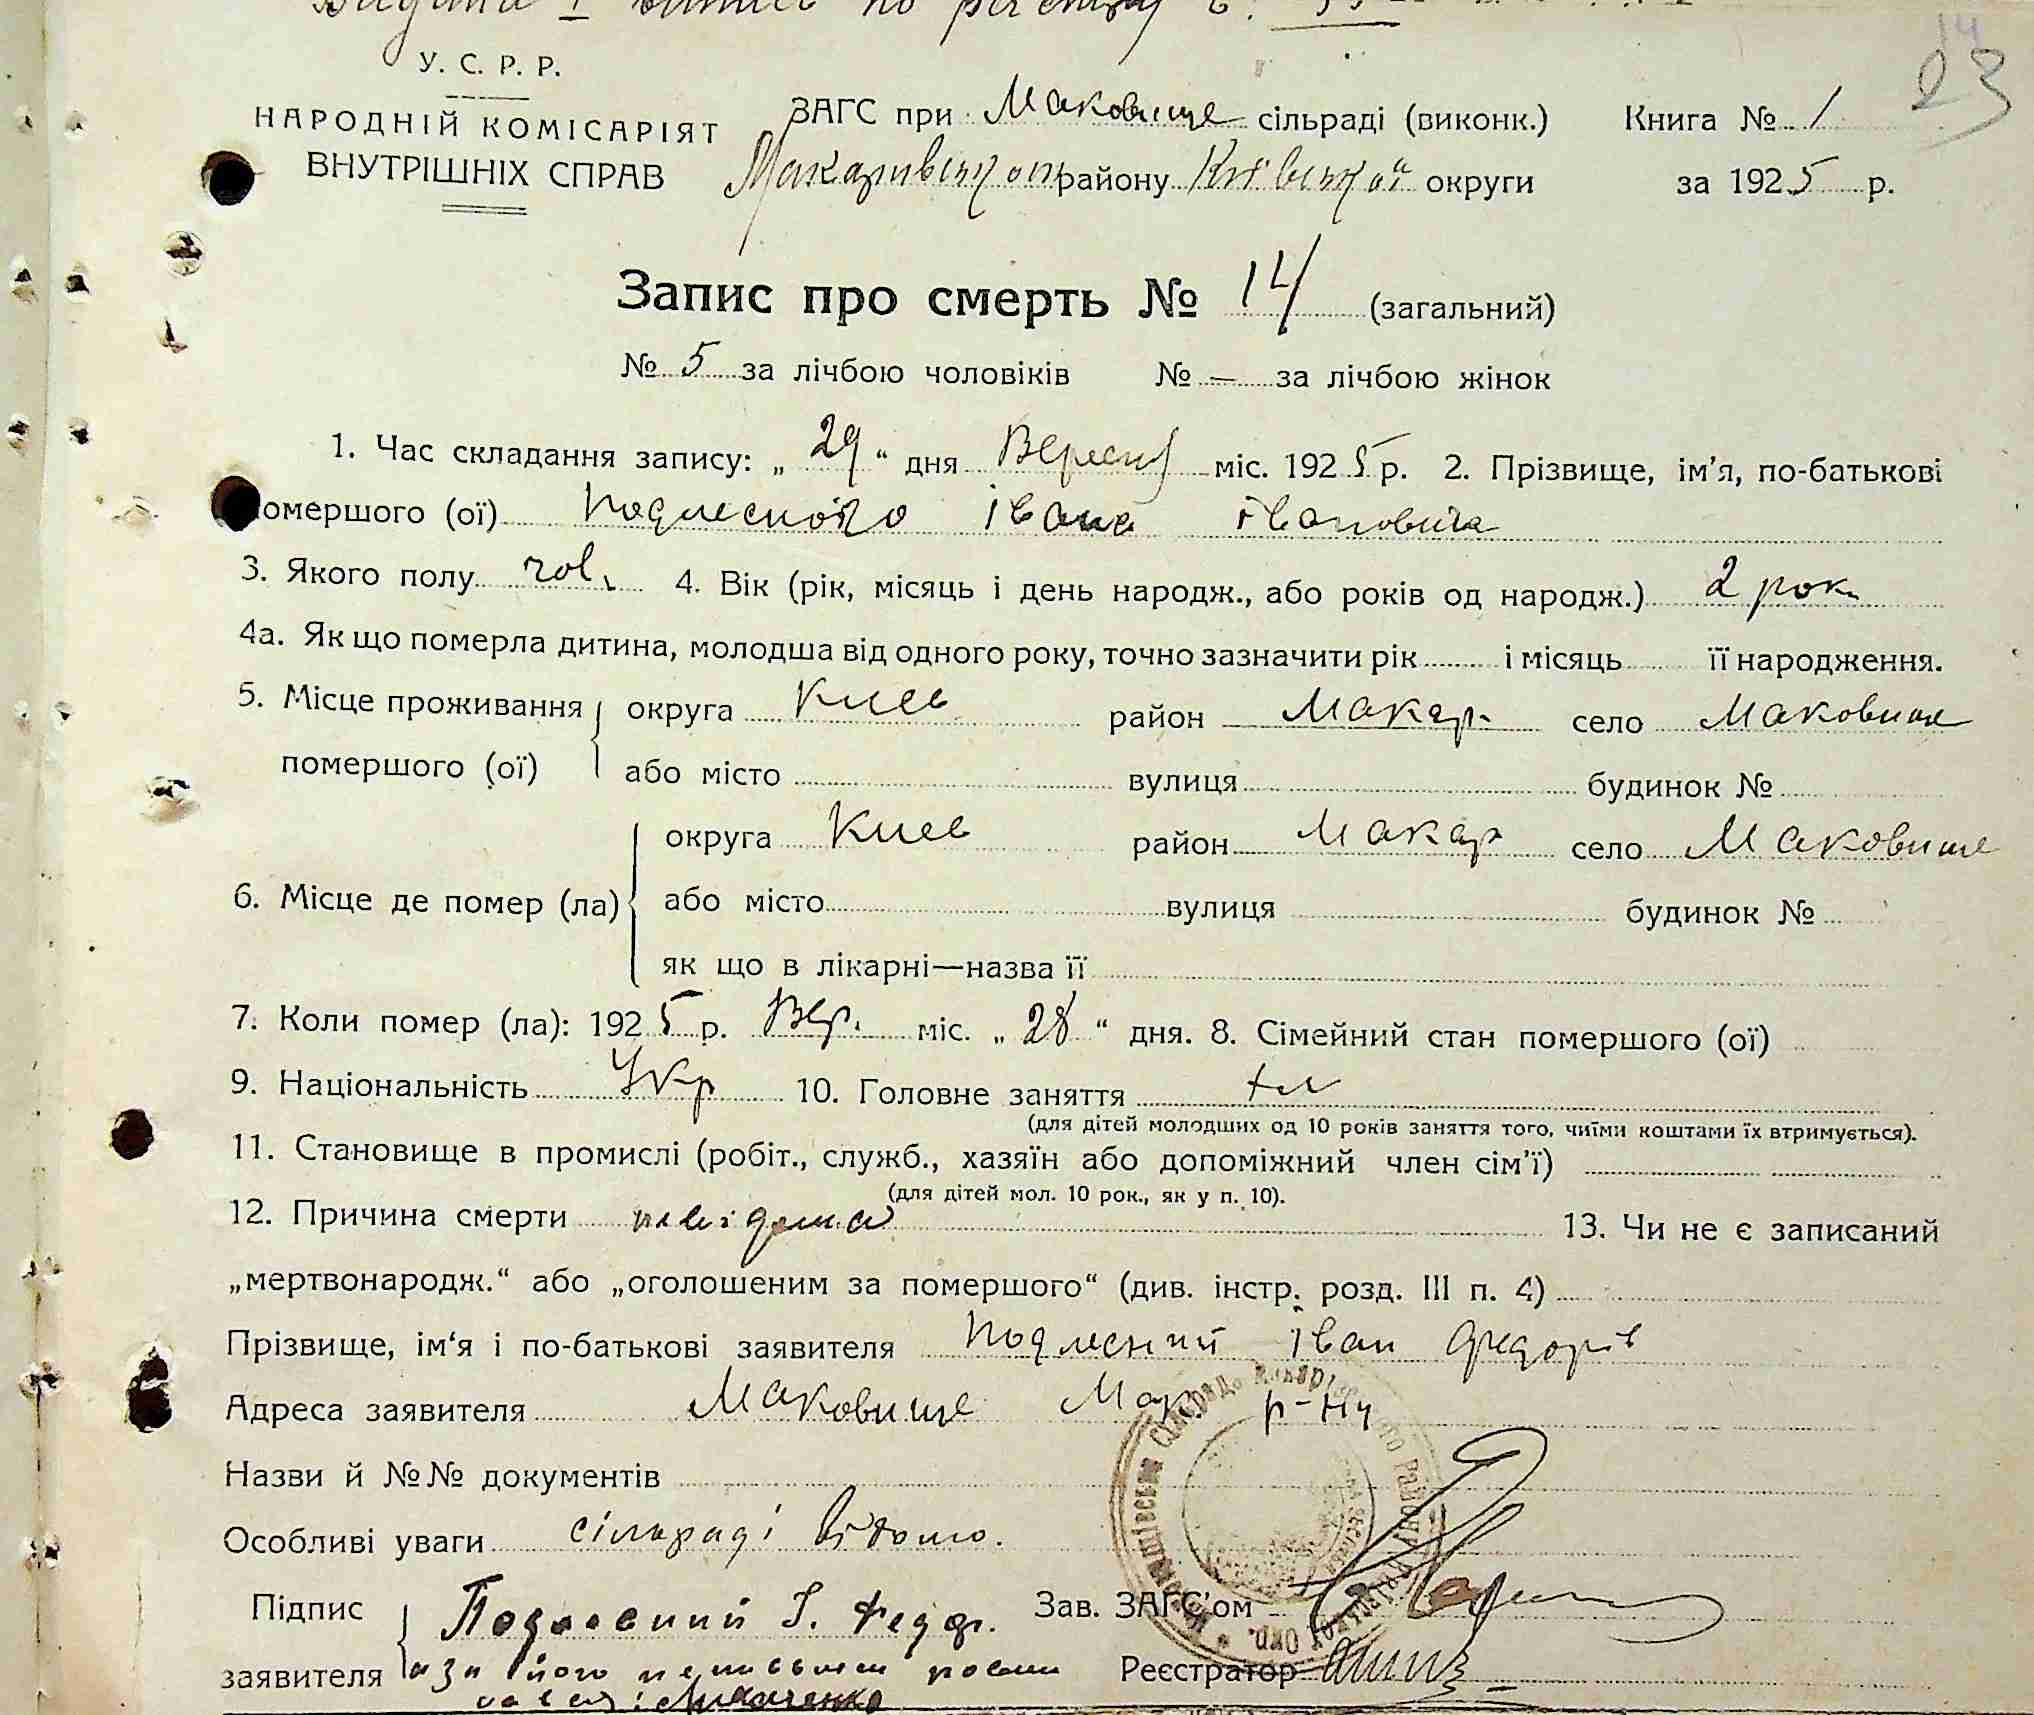 У. С. Р. Р.
НАРОДНІЙ КОМІСАРІЯТ
ВНУТРІШНІХ СПРАВ
ЗАГС при Маковище сільраді (виконк.)
Макарівського району Київської округи
Книга № 1
за 1925 р.
14
23
Запис про смерть № 14 (загальний)
№ 5 за лічбою чоловіків № — за лічбою жінок
1. Час складання запису: „ 29 “ дня Вересня міс. 1925 р. 2. Прізвище, ім’я, по-батькові
помершого (ої) Подлесного Івана Івановича
3. Якого полу чол. 4. Вік (рік, місяць і день народж., або років од народж.) 2 рок.
4а. Як що померла дитина, молодша від одного року, точно зазначити рік і місяць її народження.
5. Місце проживання округа Киев район Макар. село Маковище
помершого (ої) або місто вулиця будинок №
округа Киев район Макар село Маковище
6. Місце де помер (ла) або місто вулиця будинок №
як що в лікарні—назва її
7. Коли помер (ла): 1925 р. Вер. міс. „ 28 “ дня. 8. Сімейний стан помершого (ої)
9. Національність Укр 10. Головне заняття
(для дітей молодших од 10 років заняття того, чиїми коштами їх втримується).
11. Становище в промислі (робіт., служб., хазяїн або допоміжний член сім’ї)
(для дітей мол. 10 рок., як у п. 10).
12. Причина смерти невідома 13. Чи не є записаний
„мертвонародж.“ або „оголошеним за помершого“ (див. інстр. розд. III п. 4)
Прізвище, ім‘я і по-батькові заявителя Подлесний Іван Федорів
Адреса заявителя Маковище Мак. р-ну
Назви й №№ документів
Особливі уваги сільраді відомо.
Підпис Подлесний І. Федор. Зав. ЗАГС’ом
заявителя а за його неписьмен Реєстратор